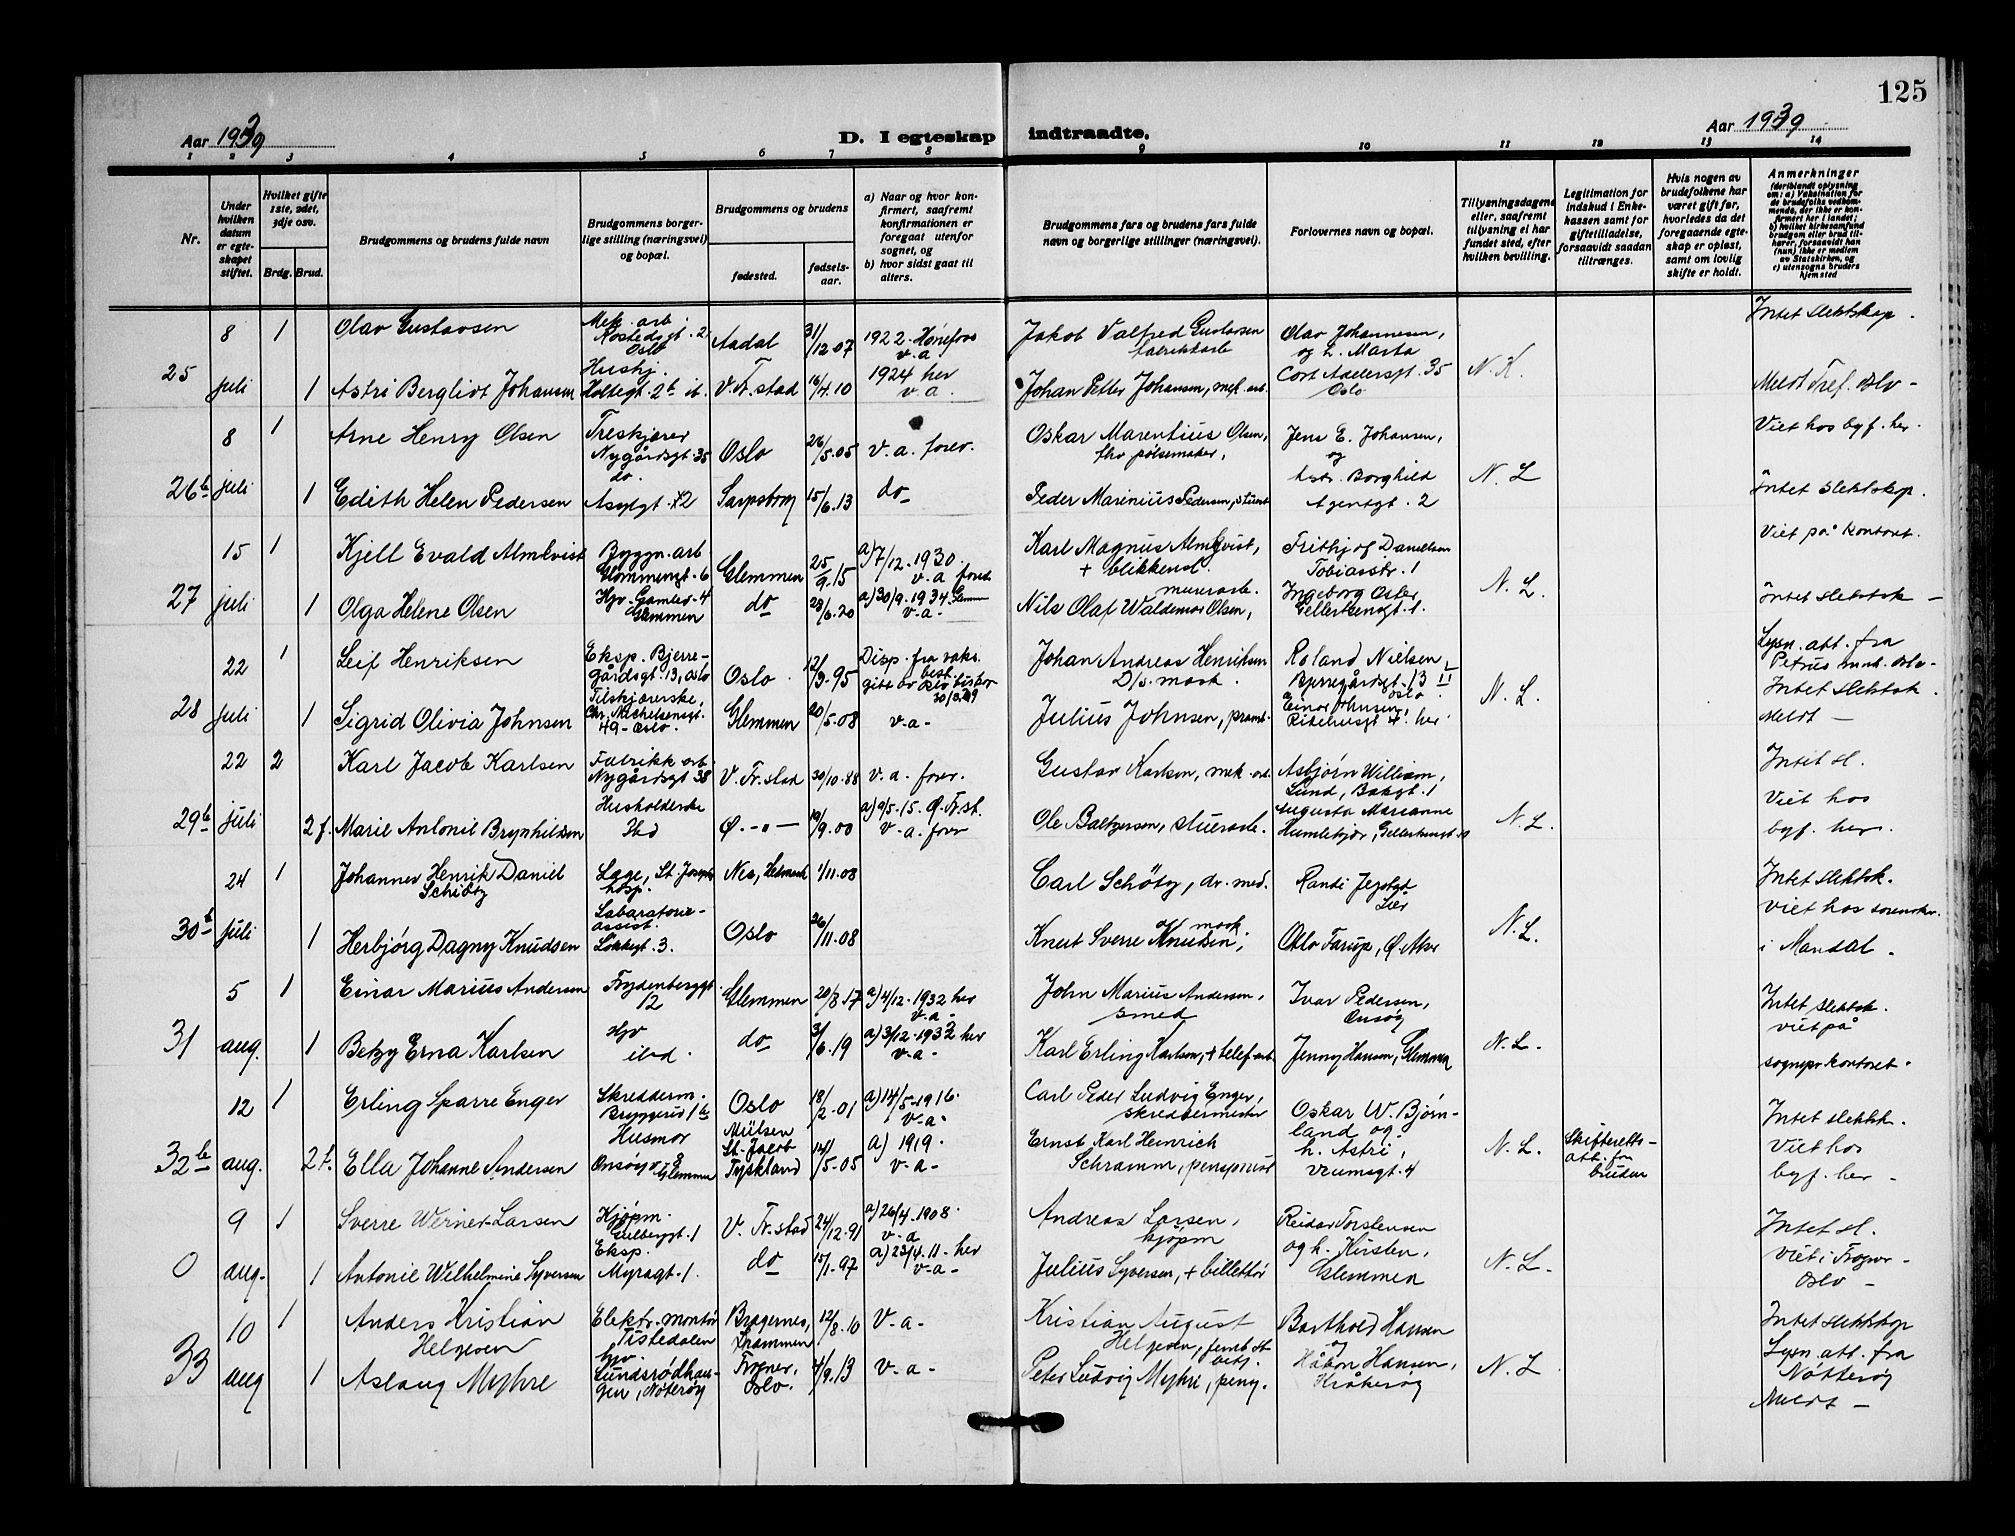 125
Aar 1939
D. I egteskap indtraadte.
Aar 1939
1 2 3 4 5 6 7 8 9 10 11 12 13 14
Nr.
Under hvilken datum er egteskapet stiftet.
Hvilket gifte 1ste, 2det, 3dje osv.
Brdg. Brud.
Brudgommens og brudens fulde navn
Brudgommens borgerlige stilling (næringsvei) og bopæl.
Brudgommens og brudens
fødested.
fødselsaar.
a) Naar og hvor konfirmert, saafremt konfirmationen er foregaat utenfor sognet, og
b) hvor sidst gaat til alters.
Brudgommens fars og brudens fars fulde navn og borgerlige stillinger (næringsvei).
Forlovernes navn og bopæl.
Tillysningsdagene eller, saafremt tillysning ei har fundet sted, efter hvilken bevilling.
Legitimation for indskud i Enkekassen samt for giftetilladelse, forsaavidt saadan tiltrænges.
Hvis nogen av brudefolkene har været gift før, hvorledes da det foregaaende egteskap er opløst, samt om lovlig skifte er holdt.
Anmerkninger
(deriblandt oplysning om: a) Vaksination for de brudefolks vedkommende, der ikke er konfirmert her i landet; b) hvilket kirkesamfund brudgom eller brud tilhører, forsaavidt han (hun) ikke er medlem av Statskirken, og c) utensogns bruders hjemsted
25 8 juli 1 Olav Gustavsen Mek. arb. Rostedsgt. 2 Oslo Aadal 31/12 07 1922. Hønefoss v.a. Jakob Valfred Gustavsen fabrikkarb Olav Johannesen, og h. Marta Cort Adelersgt. 35 Oslo Intet slektskap.
1 Astri Bergliot Johansen Hushj. Holtegt. 2b ib. V. Fr.stad 16/4.10 1924 her v.a. Johan Petter Johansen, mek. arb. Meldt Tref. Oslo -
26b 8 juli 1 Arne Henry Olsen Treskjærer Nygårdsgt. 35 Oslo 26/5.05 v.a. forev. Oskar Marentius Olsen, fhv pølsemaker, Jens E. Johansen, og N. L Viet hos byf. her.
1 Edith Helen Pedersen do. Asylgt. Sarpsborg 15/6.13 do Peder Marinius Pedersen, stuert Borghild Agentgt. 2 Intet slektskp.
27 15 juli 1 Kjell Evald Almkvist Byggn.arb Glommengt. 6 Glemmen 25/9.15 a) 7/12.1930 v.a forev Karl Magnus Almqvist, + blikkensl. Frithjof Danielsen Tobiasstr. 1 N. L. Viet på kontoret.
1 Olga Helene Olsen Glemmen do 28/6.20 a) 30/9.1934 Glemmen v-a- Nils Olaf Waldemar Olsen, murerarb. Ingeborg Oster, Gellertsensgt. 1. Intet slektsk -
28 22 juli 1 Leif Henriksen Eksp. Bjerregårdsgt. 13, Oslo Oslo 12/3.95 Disp. fra vaks. best. gitt av Oslo biskop Johan Andreas Henriksen D/s. mask. Roland Nielsen, Bjerregårdsgt. 13 II Oslo. N. L. Lysn. att. fra Petrus mnh. Oslo-
1 Sigrid Olivia Johnsen Tilskjærerske, Chr. Michelsensgt. 49 - Oslo. Glemmen 20/5-08 v-a- Julius Johnsen, Einar Johnsen, her. Intet slektsk. Meldt -
29b 22 juli 2 Karl Jacob Karlsen Fabrikk arb. Nygårdsgt 38 V. Fr.stad 30/10.88 v.a. forev. Gustav Karlsen, mek. arb. Asbjørn William, Lund, Bakgt. 1 N. L. Intet sl.
2 f. Marie Antonie Brynhildsen Husholderske Ibd Ø. -"- 19/9.00 a) 9/5.15. Ø. Fr.st. v.a. forev Ole Baltzersen, stuerarb. Augusta Marianne Viet hos byf. her.
30b 24 juli 1 Johannes Henrik Daniel Schiøtz Læge, St. Josephs hosp. Nes, Hedmark 1/11.08 Carl Schøtz, dr. med. Randi Jegstgt N. L. Intet slektsk.
1 Herbjørg Dagny Knudsen Labaratorieassist. Løkkegt. 3. Oslo 26/11-08 Knut Sverre Knudsen, mask. Otto Tarup, Ø. Aker viet hos sorenskr. i Mandal.
31 5 aug. 1 Einar Marius Andersen Frydenbergt. 12 Glemmen 20/8 17 a) 4/12.1932 her v.a- John Marius Andersen, smed Ivar Pedersen, Onsøy N. L. Intet slektsk. viet på
1 Betzy Erna Karlsen Hjv ibd. do 3/6.19 a) 3/12.1933 her v-a- Karl Erling Karlsen, + telef.arb Jenny Hansen, Glemmen sognepr kontoret.
32b 12 aug. 1 Erling Sparre Enger Skredderm. Bryggeris Oslo 18/2.01 a) 14/5-1916. v-a- Carl Peder Ludvig Enger, skreddermester Oskar W. Bjørnland og h. Astri, Vrumsgt. 4 N. L. Skifteretts-att. fra bruden Intet slektsk.
2 f. Ella Johanne Andersen Husmor Onsøyv. Glemmen Mülsen St. Jacob Tyskland 14/5-05 a) 1919. v-a- Ernst Karl Heinrich Schramm, pensjonist Viet hos byf. her -
0 9 aug. 1 Sverre Werner-Larsen Kjøpm. Gulbergt. 1 V. Fr.stad 24/12.91 a) 26/4.1908. v-a Andreas Larsen, kjøpm Reidar Torstensen og h. Kirsten, Glemmen N. L. Intet sl.
1 Antonie Wilhelmine Syversen Eksp. Myragt. 1. do 15/1-97 a) 23/4.11- her v-a- Julius Syversen, + billettør viet i Frogner - Oslo -
33 10 aug 1 Anders Kristian Helgesen Elektr. montør Tistedalen Bragernes, Drammen 12/8.10 v-a- Kristian August Helgesen, Barthold Hansen og Håkon Hansen, Kråkerøy N. L Intet slektskap
1 Aslaug Myhre hjv. Lundsrødhaugen, Nøterøy Frogner, Oslo. 4/9.13 v-a- Peter Ludvig Myhre, Lysn. att. fra Nøtterøy Meldt -